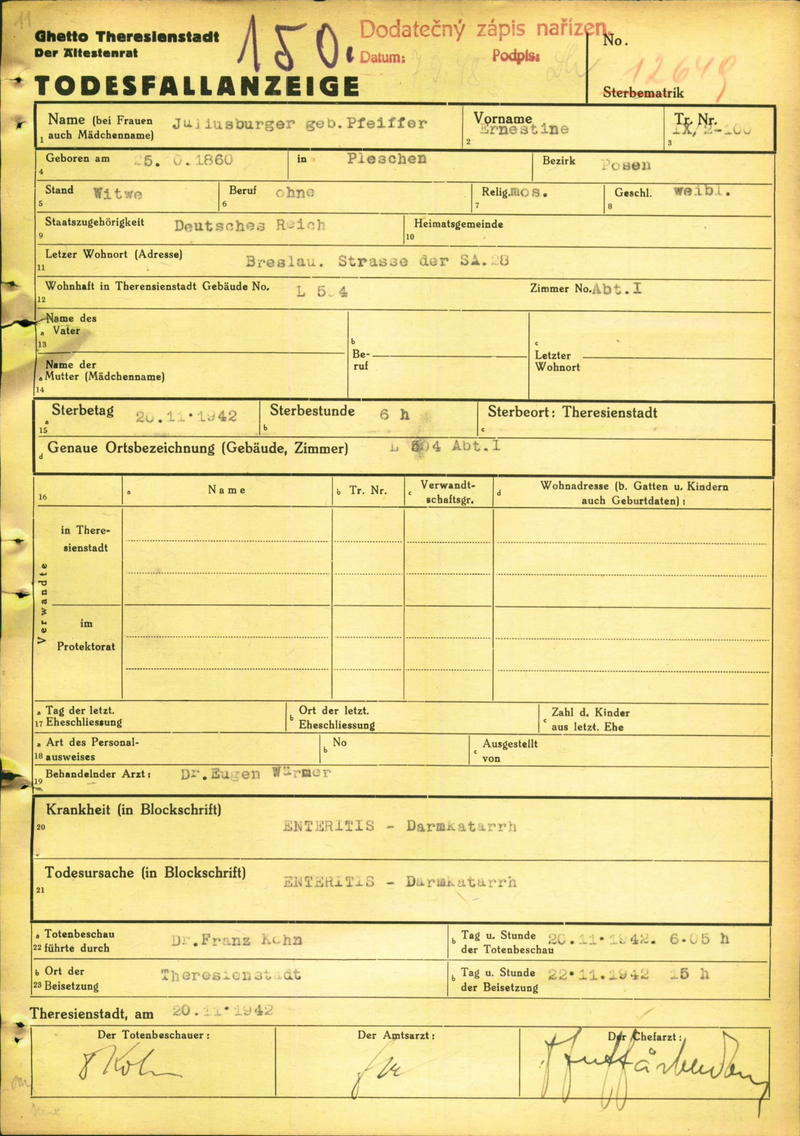 Ghetto Theresienstadt
Der Ältestenrat
150.
Dodatečný zápis nařízen
Datum: Podpis:
No.
12649
Sterbematrik
TODESFALLANZEIGE
Name (bei Frauen auch Mädchenname) Juliusburger geb.Pfeiffer
1
Vorname Ernestine
2
Tr. Nr. IX/2-
3
Geboren am 1860
4
in Pleschen
Bezirk Posen
Stand Witwe
5
Beruf ohne
6
Relig. mos.
7
Geschl. weibl.
8
Staatszugehörigkeit Deutsches Reich
9
Heimatsgemeinde
10
Letzer Wohnort (Adresse) Breslau. Strasse der SA. 28
11
Wohnhaft in Theresienstadt Gebäude No. L 504
12
Zimmer No. Abt.I
a Name des Vater
13
b Beruf
c Letzter Wohnort
a Name der Mutter (Mädchenname)
14
a Sterbetag 20.11.1942
15
b Sterbestunde 6 h
c Sterbeort: Theresienstadt
d Genaue Ortsbezeichnung (Gebäude, Zimmer) L 504 Abt.I
16
a Name
b Tr. Nr.
c Verwandtschaftsgr.
d Wohnadresse (b. Gatten u. Kindern auch Geburtdaten):
Verwandte
in Theresienstadt
im Protektorat
a Tag der letzt.
17 Eheschliessung
b Ort der letzt. Eheschliessung
c Zahl d. Kinder aus letzt. Ehe
a Art des Personal-
18 ausweises
b No
c Ausgestellt von
Behandelnder Arzt: Dr.Eugen Wärmer
19
Krankheit (in Blockschrift)
20
ENTERITIS - Darmkatarrh
Todesursache (in Blockschrift)
21
ENTERITIS - Darmkatarrh
a Totenbeschau
22 führte durch Dr.Franz Kohn
b Tag u. Stunde der Totenbeschau 20.11.1942. 6.05 h
b Ort der
23 Beisetzung Theresienstadt
b Tag u. Stunde der Beisetzung 22.11.1942 15 h
Theresienstadt, am 20.11.1942
Der Totenbeschauer:
Der Amtsarzt:
Der Chefarzt:
F Kohn